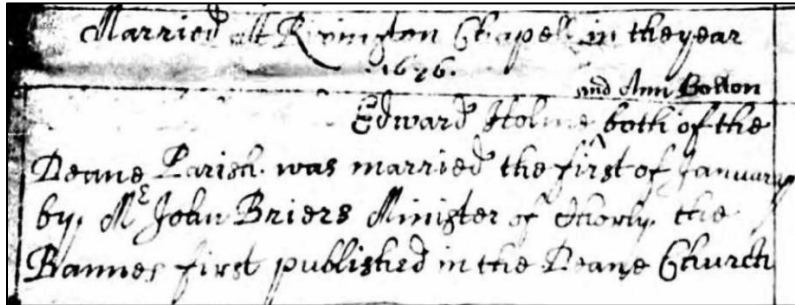 Married att Rivington Chapell in the year
1696.
and Ann Bolton
Edward Holme ^ both of the
Deane Parish. was married the first of January
by. Mr John Briers Minister of Chorly. the
Bannes first published in the Deane Church